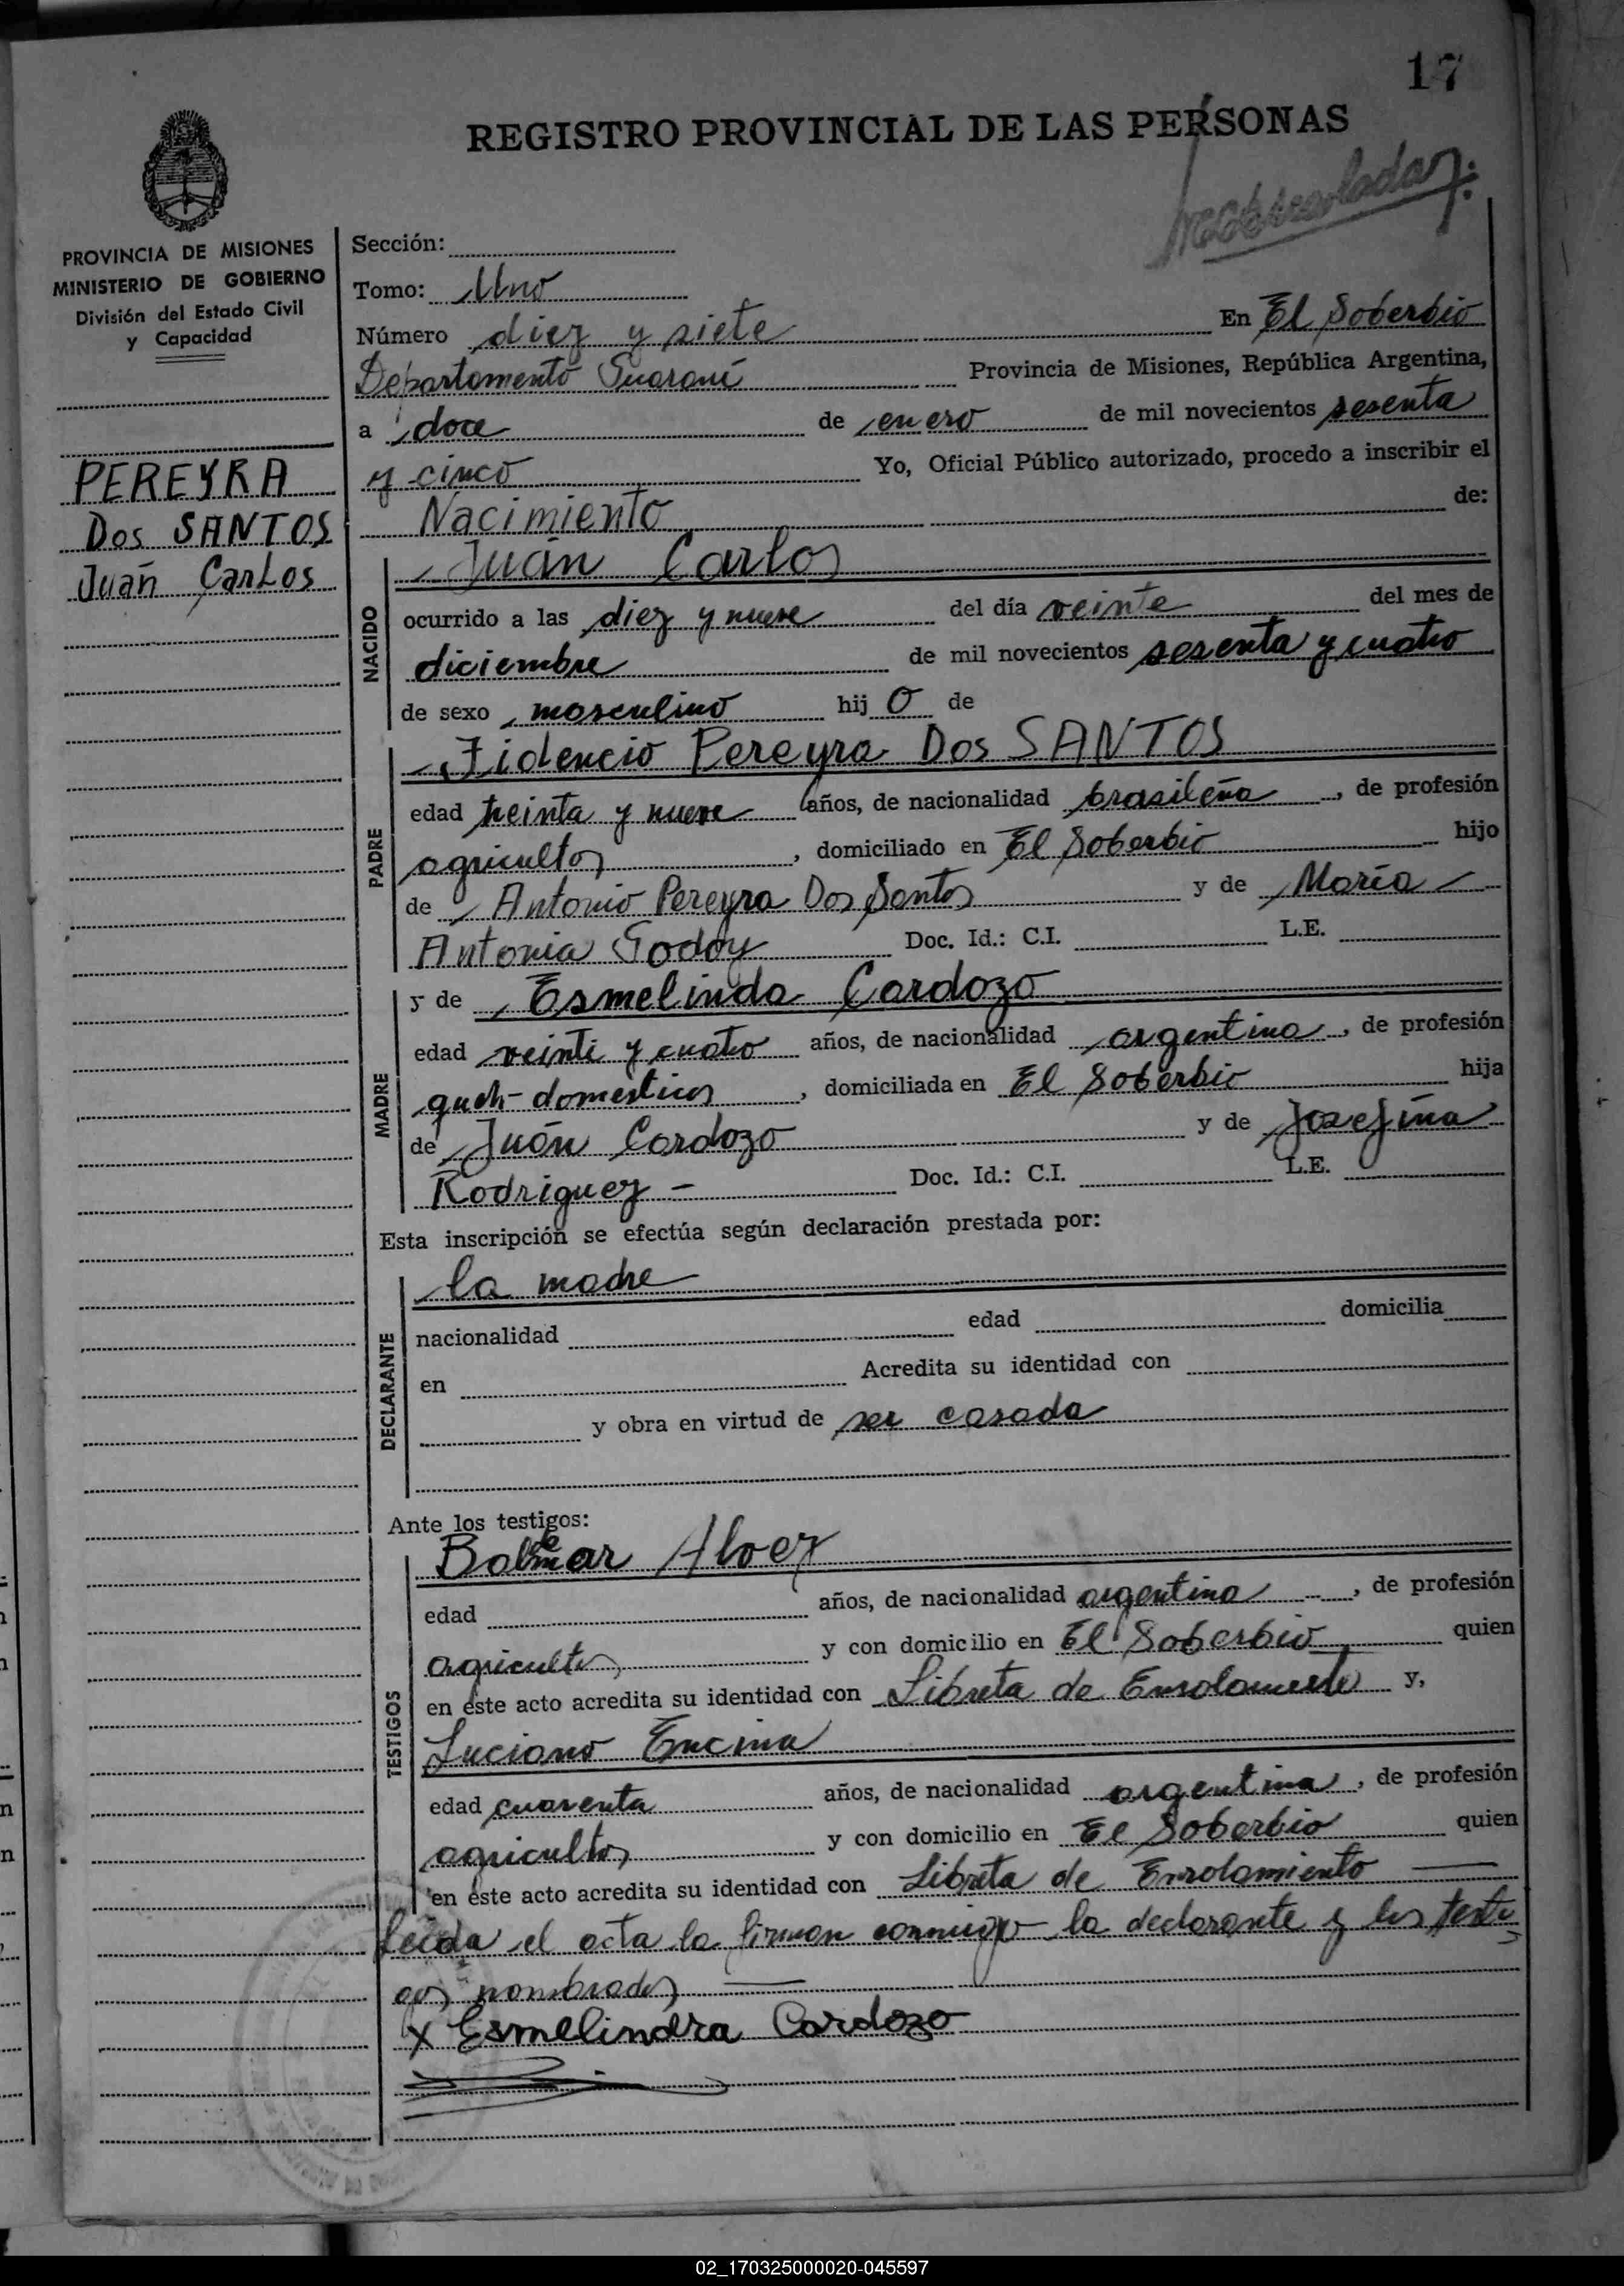 17
REGISTRO PROVINCIAL DE LAS PERSONAS
PROVINCIA DE MISIONES
MINISTERIO DE GOBIERNO
División del Estado Civil
y Capacidad
PEREYRA
Dos SANTOS
Juan Carlos
Sección:
Tomo: Uno
Número diez y siete En El Soberbio
Departamento Guaraní Provincia de Misiones, República Argentina,
a doce de enero de mil novecientos sesenta
y cinco Yo, Oficial Público autorizado, procedo a inscribir el
Nacimiento de:
NACIDO
Juan Carlos
ocurrido a las diez y nueve del día veinte del mes de
diciembre de mil novecientos sesenta y cuatro
de sexo masculino hij o de
PADRE
Fidencio Pereyra Dos SANTOS
edad treinta y nueve años, de nacionalidad brasileña, de profesión
agricultor, domiciliado en El Soberbio hijo
de Antonio Pereyra Dos Santos y de María
Antonia Godoy Doc. Id.: C.I. L.E.
MADRE
y de Esmelinda Cardozo
edad veinti y cuatro años, de nacionalidad argentina, de profesión
queh- domésticos, domiciliada en El Soberbio hija
de Juan Cardozo y de Josefina
Rodriguez - Doc. Id.: C.I. L.E.
Esta inscripción se efectúa según declaración prestada por:
DECLARANTE
la madre
nacionalidad edad domicilia
en Acredita su identidad con
y obra en virtud de ser casada
Ante los testigos:
TESTIGOS
Alvez
edad años, de nacionalidad argentina, de profesión
agricultor y con domicilio en El Soberbio quien
en este acto acredita su identidad con Libreta de Enrolamiento y,
Luciano Encina
edad cuarenta años, de nacionalidad argentina, de profesión
agricultor y con domicilio en El Soberbio quien
en este acto acredita su identidad con Libreta de Enrolamiento
Leída el acta la firman conmigo la declarante y los testi
gos nombrados
x Esmelindra Cardozo
02_170325000020-045597